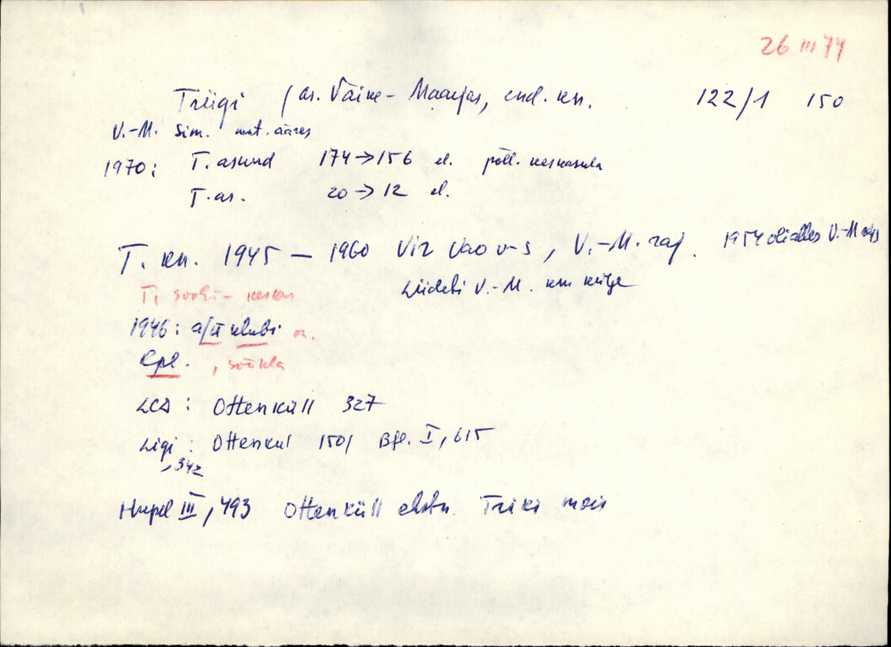 26 III 74
Triigi / as. Väike-Maarjas, end. kn. 122/1 150
V.-M. Sim. mnt. ääres
1970: T. asund 174→156 el. põll. keskasula
T. as. 20→12 el.
T. kn. 1945 — 1960 Vir Vao v-s, V.-M. raj. 1954 V.-M
liideti V.-M. kn külge
T,
1946: a/ü klubi
Rpl. , söökla
LCD : Ottenküll 327
Ligi : Ottenkul 1501 Bfl. I, 615
, 342
Hupel III, 493 Ottenküll ehstn. Triki mois